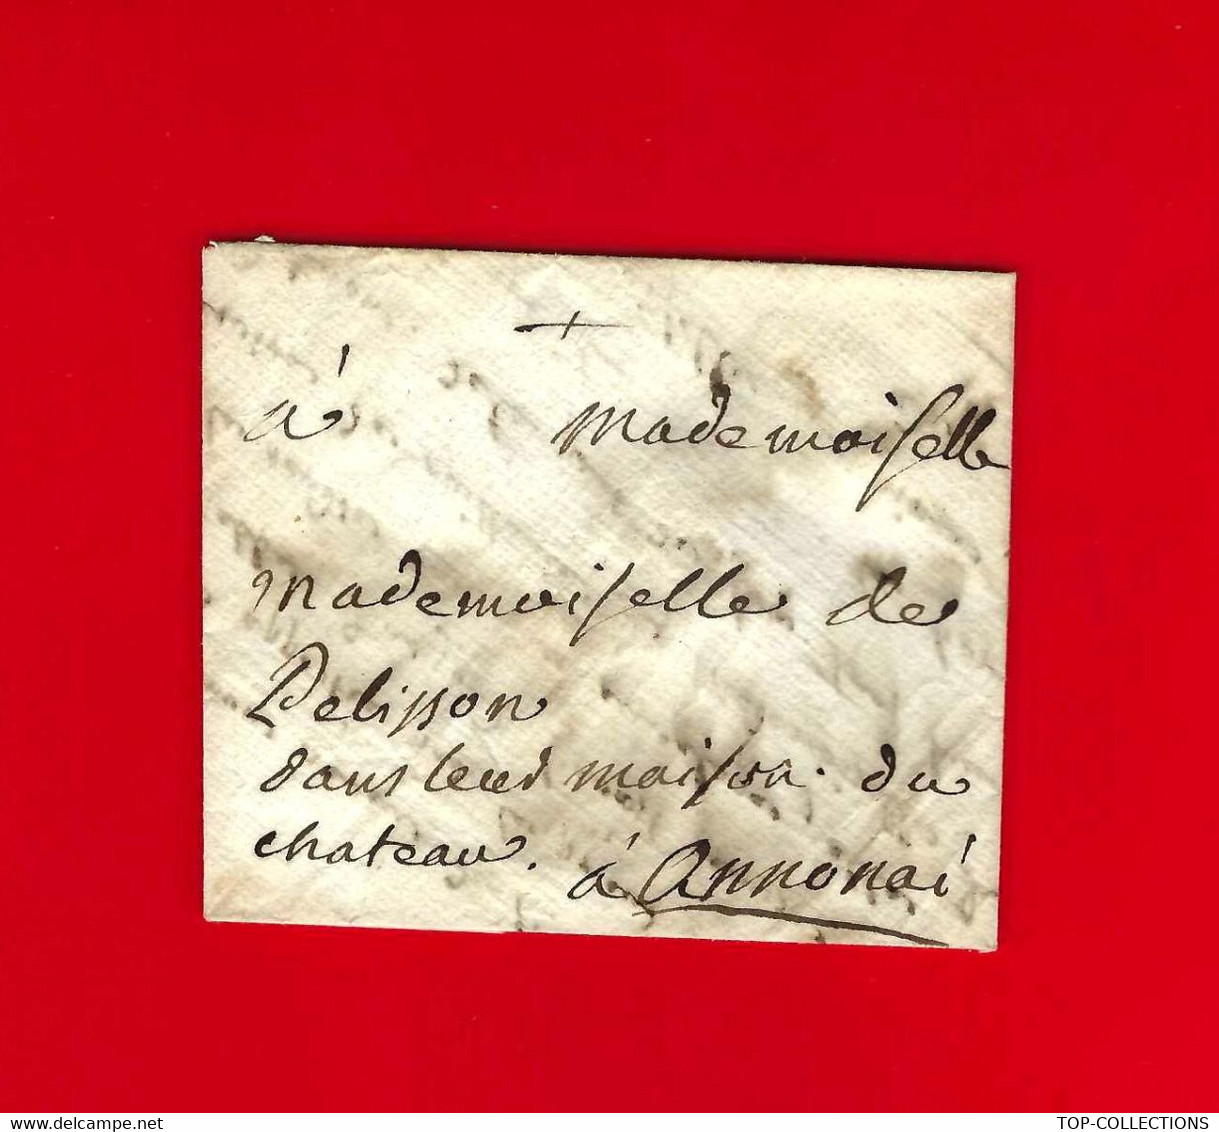 +
à mademoiselle
mademoiselle de
Pelisson
dans leur maison du
chateau. à Annonai
TOP-COLLECTIONS